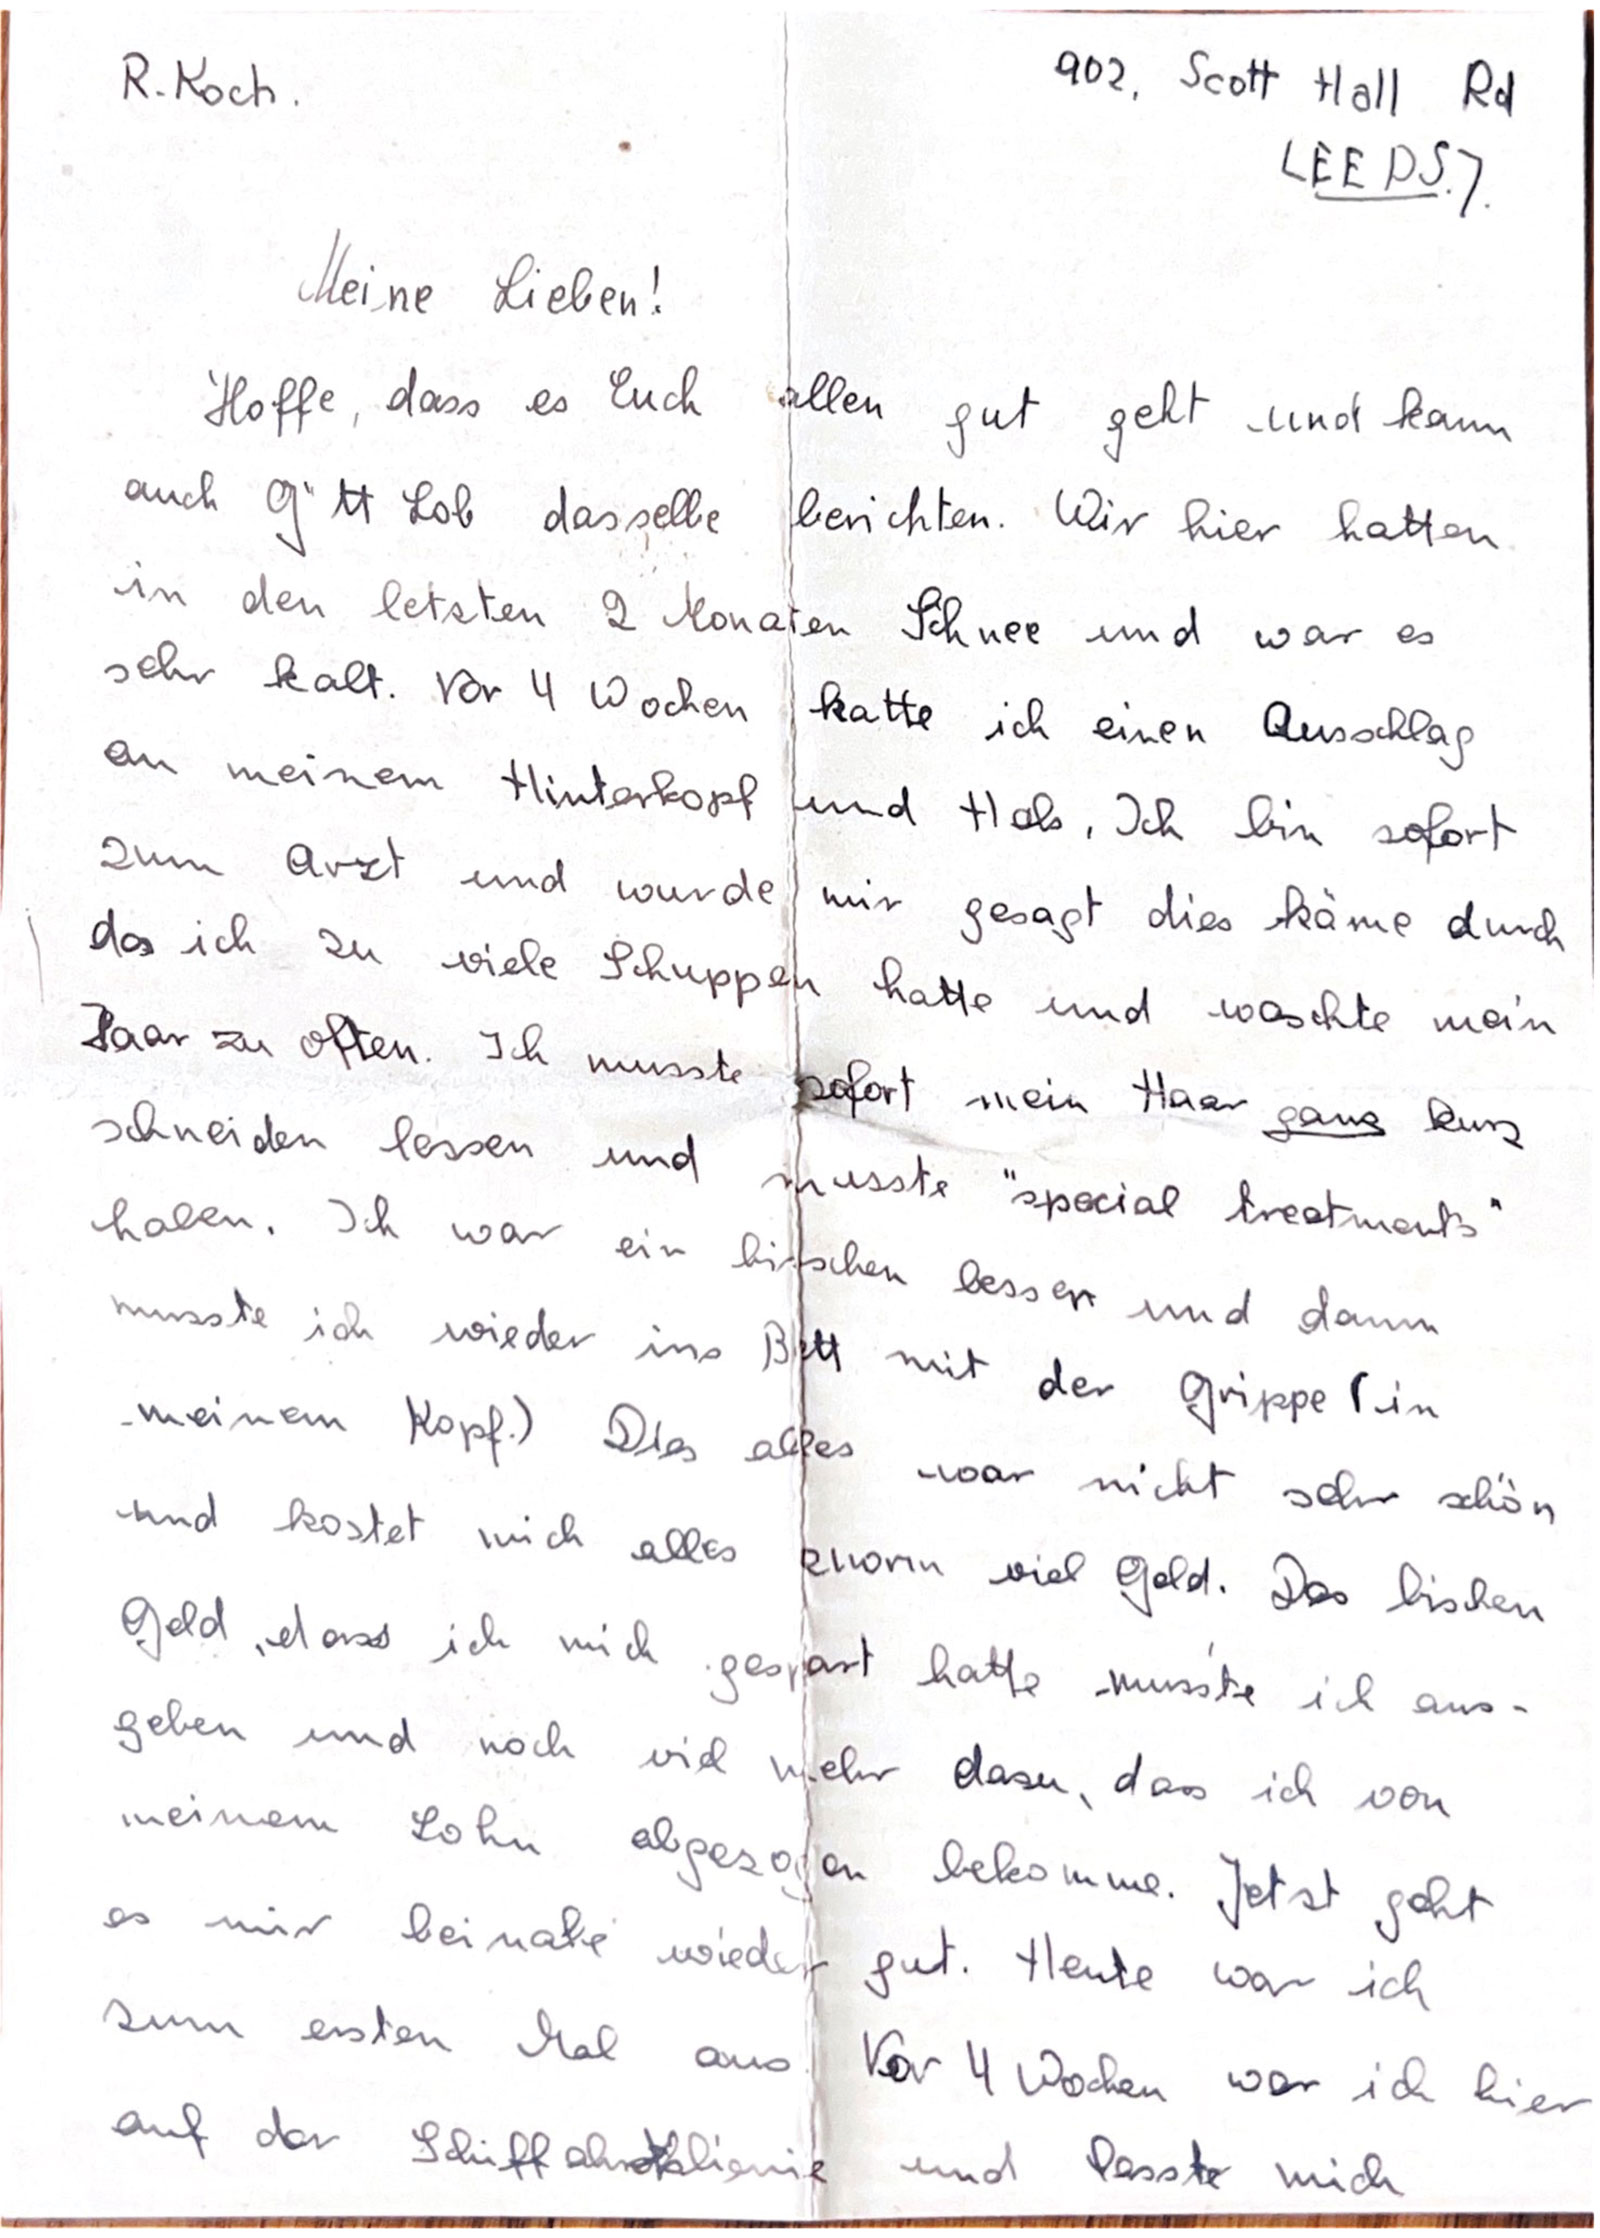 R. Koch.
902, Scott Hall Rd
LEEDS. 7.
Meine Lieben!
Hoffe, dass es Euch allen gut geht und kann
auch G"tt Lob dasselbe berichten. Wir hier hatten
in den letzten 2 Monaten Schnee und war es
sehr kalt. Vor 4 Wochen hatte ich einen Ausschlag
an meinem Hinterkopf und Hals, Ich bin sofort
zum Arzt und wurde mir gesagt dies käme durch
das ich zu viele Schuppen hatte und waschte mein
Haar zu often. Ich musste sofort mein Haar ganz kurz
schneiden lassen und musste "special treatments"
haben. Ich war ein bisschen besser und dann
musste ich wieder ins Bett mit der Grippe (in
meinem Kopf.) Dies alles war nicht sehr schön
und kostet mich alles enorm viel Geld. Das bischen
Geld, dass ich mich gespart hatte musste ich aus-
geben und noch viel mehr dazu, das ich von
meinem Lohn abgezogen bekomme. Jetzt geht
es mir beinahe wieder gut. Heute war ich
zum ersten Mal aus. Vor 4 Wochen war ich hier
auf der und lasste mich